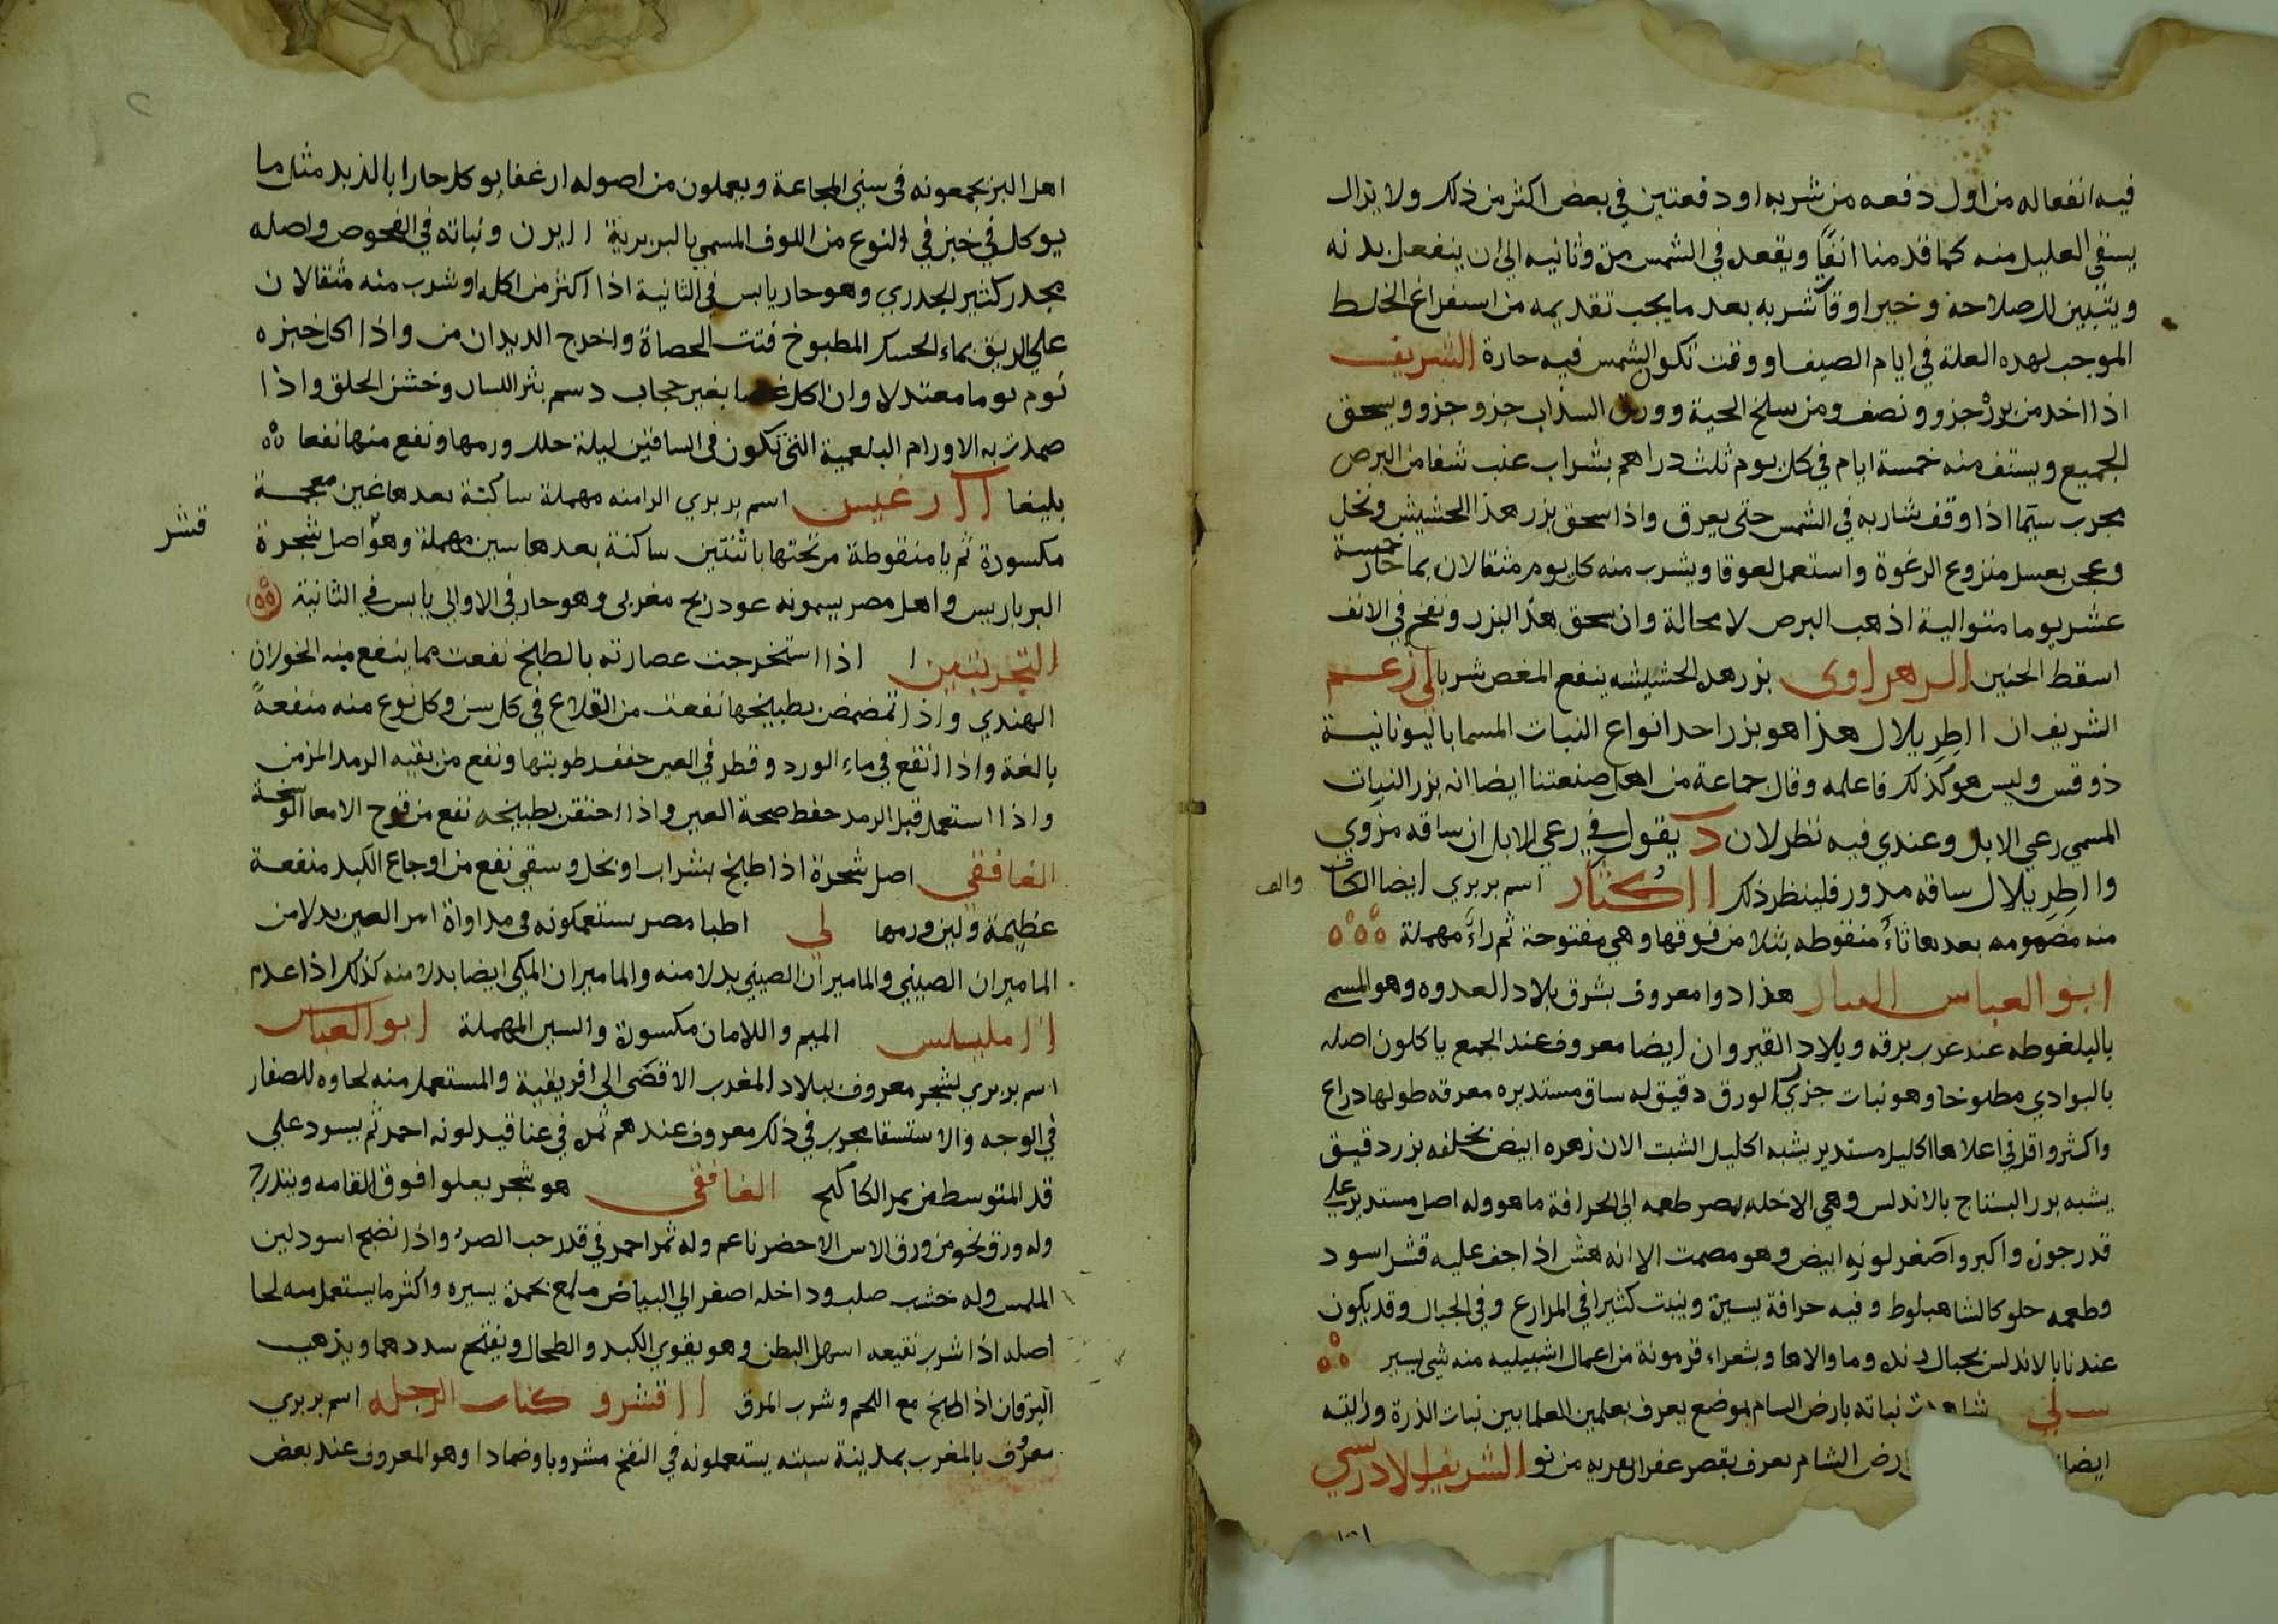 فيه انفعاله من اول دفعه من شربه او دفعتين في بعض اكثر من ذلك ولا يزال
يسقي العليل منه كما قدمنا انفا ويقعد في الشمس مرة وثانيه الي ان ينفعل بدنه
ويتبين للصلاحه وخير اوقات شربه بعد ما يجب تقديمه من استفراغ الخلط
الموجب لهده العلة في ايام الصيف او وقت تكون الشمس فيه حارة الشريف
اذا اخد من بزره جزو ونصف ومن سلخ الحية وورق السذاب جزو جزو ويسحق
الجميع ويستف منه خمسة ايام في كل يوم ثلث دراهم بشراب عنب شفا من البرص
مجرب سيما اذا وقف شاربه في الشمس حتى يعرق واذا سحق بزر هذا الحشيش ونخل
وعجن بعسل منزوع الرغوة واستعمل لعوقا ويشرب منه كل يوم مثقالان بما حار خمسة
عشر يوما متوالية اذهب البرص لا محالة وان سحق هذا البزر ونفخ في الانف
اسقط الجنين الزهراوى بزر هده الحشيشه ينفع المغص شربا لي زعم
الشريف ان ااطريلال هذا هو بزر احد انواع النبات المسما باليونانية
ذوقس وليس هو كذلك فاعلمه وقال جماعة من اهل صنعتنا ايضا انه بزر النبات
المسمي رعي الابل وعندي فيه نظر لان د يقول في رعي الابل ان ساقه مزوي
وااطريلال ساقه مدور فلينظر ذلك ااكثار اسم بربري ايضا الكاف
والف
منه مضمومه بعدها ثاء منقوطه بثلاث من فوقها وهي مفتوحة ثم راء مهملة
ابو العباس النباتي هذا دوا معروف بشرق بلاد العدوه وهو المسمي
بالبلغوطه عند عرب برقه وبلاد القيروان ايضا معروف عند الجميع ياكلون اصله
بالبوادي مطبوخا وهو نبات جزري الورق دقيق له ساق مستديره معرقه طولها دراع
واكثر واقل في اعلاها اكليل مستدير يشبه اكليل الشبت الا ان زهره ابيض يخلفه بزر دقيق
يشبه بزر البستناج بالاندلس وهي الاخله بمصر طعمه الي الحرافة ما هو وله اصل مستدير علي
قدر جوز واكبر واصغر لونه ابيض وهو مصمت الا انه هش اذا جف عليه قشر اسود
وطعمه حلو كالشاهبلوط وفيه حرافة يسيرة وينبت كثيرا في المزارع وفي الجبال وقد يكون
عندنا بالاندلس بجبال رنده وما والاها وبشعراء قرمونة من اعمال اشبيليه منه شي يسير
لي شاهدت نباته بارض الشام بموضع يعرف بعلمين العلما بين نبات الذرة ورايته
ايضا ارض الشام بعرف بقصر عفرا بقريه من نوا الشريف الادريسي
اهل البر يجمعونه في سني المجاعة ويعملون من اصوله ارغفا يوكل حارا بالزبد مثل ما
يوكل في خبز في النوع من اللوف المسمي بالبربرية اايرن ونباته في الفحوص واصله
مجدر كثير الجدري وهو حار يابس في الثانية اذا اكثر من اكله او شرب منه مثقالان
علي الريق بماء الحسك المطبوخ فتت الحصاة واخرج الديدان من واذا اكل خبزه
نوم نوما معتدلا وان اكل غضا بغير حجاب دسم بثر اللسان وخشن الحلق واذا
ضمدت به الاورام البلغمية التي تكون في الساقين ليلة حلل ورمها ونفع منها نفعا
بليغا اارغيس اسم بربري الرا منه مهملة ساكنة بعدها غين معجمة
مكسورة ثم يا منقوطة من تحتها باثنتين ساكنة بعدها سين مهملة وهو اصل شجرة
قشر
البرباريس واهل مصر يسمونه عود ريح مغربي وهو حار في الاولي يابس في الثانية
التجربتين اذا استخرجت عصارته بالطبخ نفعت مما ينفع منه الخولان
الهندي واذا تمضمض بطبيخها نفعت من القلاع في كل سن وكل نوع منه منفعة
بالغة واذا انقع في ماء الورد وقطر في العين جفف رطوبتها ونفع من بقيه الرمد المزمن
واذا استعمل قبل الرمد حفظ صحة العين واذا احتقن بطبيخه نفع من قروح الامعا الوسخة
الغافقي اصل شجرة اذا طبخ بشراب او بخل وسقي نفع من اوجاع الكبد منفعة
عظيمة ولين ورمها لي اطبا مصر يستعملونه في مداواة امر العين بدلا من
الماميران الصيني والماميران الصيني بدلا منه والماميران المكي ايضا بدلا منه كذلك اذا عدم
ااملليس الميم واللامان مكسورة والسين المهملة ابو العباس
اسم بربري لشجر معروف ببلاد المغرب الاقصى الى افريقية والمستعمل منه لحاوه للصفار
في الوجه والاستسقا مجرب في ذلك معروف عندهم ثمره في عناقيد لونه احمر ثم يسود علي
قد المتوسط من ثمر الكاكنج الغافقي هو شجر يعلوا فوق القامه ويتدرج
وله ورق نحو من ورق الاس الاخضر ناعم وله ثمر احمر في قدر حب الضرو واذا نضج اسود لين
الملمس وله خشب صلب وداخله اصفر الي البياض ملمع بحمرة يسيره واكثر ما يستعمل منه لحا
اصله اذا شرب نقيعه اسهل البطن وهو يقوي الكبد والطحال ويفتح سددهما ويذهب
اليرقان اذا طبخ مع اللحم وشرب المرق ااقشرو كتاب الرحله اسم بربري
معروف بالمغرب بمدينة سبته يستعملونه في النفخ مشروبا وضمادا وهو المعروف عند بعض